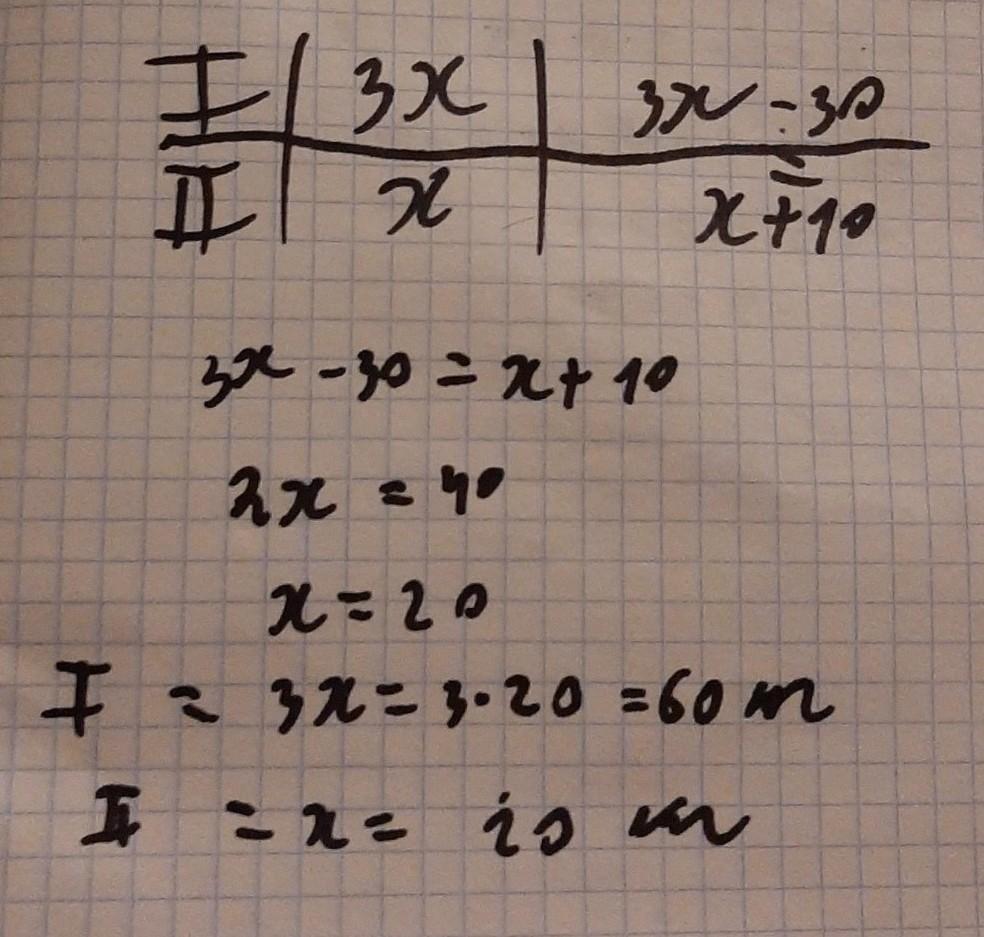 I | 3x | 3x - 30
=
II | x | x + 10
3x - 30 = x + 10
2x = 40
x = 20
I = 3x = 3·20 = 60 m
II = x = 20 m